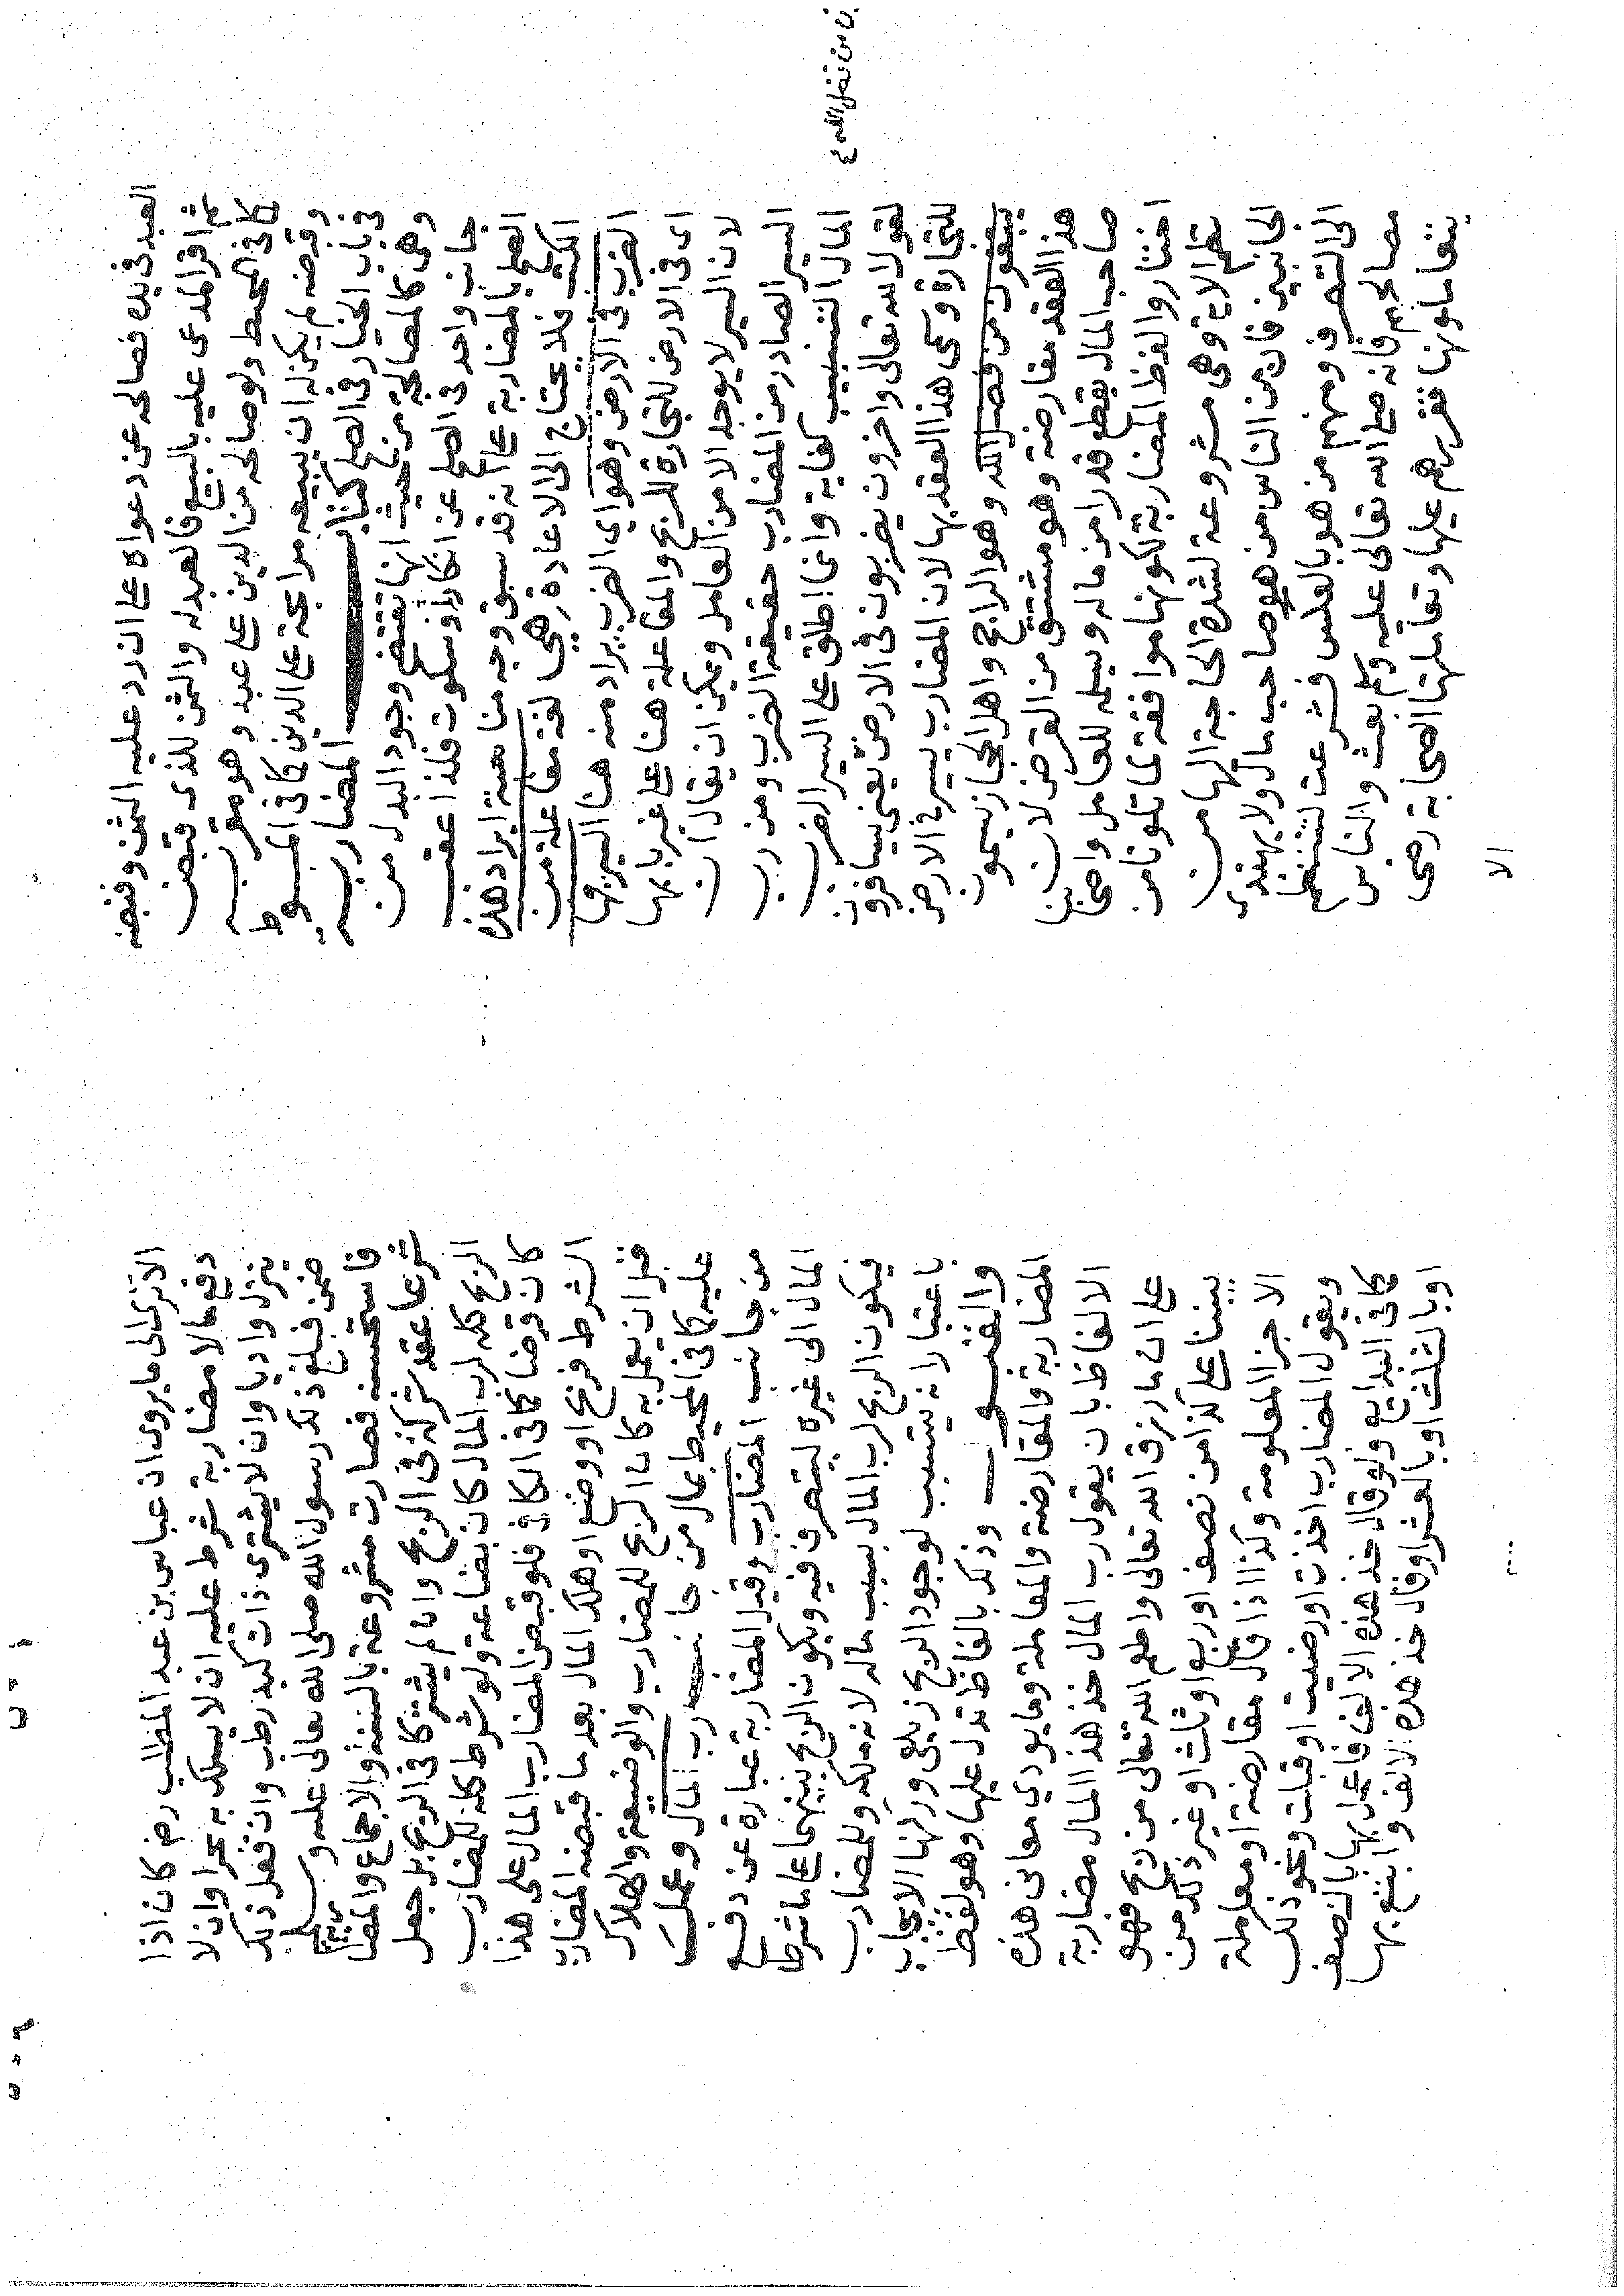 العبد في يده فصالحه عن دعواه على ان رد عليه الثمن وقبضه
ثم اقر المدعى عليه بالبيع فالعبد له والثمن للذى قبض
كما في المحيط ولو صالحه من الدين على عبد وهو مقر به
وقبضه لم يكن له ان يبيعه مرابحة على الدين كما في المبسوط
في باب الخيار في الصلح كتاب المضاربه
وهى كالمصالحة من حيث انها تقتضى وجود البدل من
جانب واحد في الصلح عن انكار او سكوت فلذا عقب
الصلح بالمضاربة على انه قد سبق وجه مناسبة ايراد هذه
الكتب فلا يحتاج الى الاعادة هي لغة مفاعلة من
الضرب في الارض وهو اى الضرب يراد منه هنا السير فيها
اى في الارض للتجارة للربح والمفاعلة هنا على غير بابها
لان السير لا يوجد الا من العامل ويمكن ان يقال ان
السير الصادر من المضارب حقيقة الضرب ومن رب
المال التسبيب كفاية وانما اطلق على السير الضرب
لقول الله تعالى واخرون يضربون في الارض يعنى يسافرون
للتجارة وسمى هذا العقد بها لان المضارب يسير في الارض
يبتغون من فضل الله وهو الرابح واهل الحجاز يسمون
ن من فضل الله ع
هذا العقد مقارضة وهو مشتق من القرض لان
صاحب المال يقطع قدرا من ماله ويسلمه للعامل واصحابنا
اختاروا لفظ المضاربة لكونها موافقة لما تلونا من
نظم الاية وهى مشروعة لشدة الحاجة اليها من
الجانبين فان من الناس من هو صاحب مال ولا يهتدى
الى التصرف ومنهم من هو بالعكس فشرعت لتنتظم
مصالحهم فانه صلى الله تعالى عليه وسلم بعث والناس
يتعاملونها فقررهم عليها وتعاملتها الصحابة رضى
الا
الا ترى الى ما يروى ان عباس بن عبد المطلب رضه كان اذا
دفع مالا مضاربة شرط عليه ان لا يسلك به بحرا وان لا
ينزل واديا وان لا يشترى ذات كبد رطب وان فعل ذلك
ضمن فبلغ ذلك رسول الله صلى الله تعالى عليه وسلم
فاستحسنه فصارت مشروعة بالسنة والاجماع والمضاربة
شرعا عقد شركة في الربح وان لم يشتركا في الربح بل جعل
الربح كله لرب المال كان بضاعة ولو شرط كله للمضارب
كان قرضا كما في الكافي فلو قبض المضارب المال على هذا
الشرط فربح او وضع او هلك المال بعد ما قبضه المضارب
قبل ان يعمل به كان الربح للمضارب والوضيعة والهلاك
عليه كما في المحيط بمال من جانب رب المال وعمل
من جانب المضارب وقيل المضاربة عبارة عن دفع
المال الى غيره ليتصرف فيه ويكون الربح بينهما على ما شرطا
فيكون الربح لرب المال بسبب ماله لانه ملكه وللمضارب
باعتبار انه يتسبب لوجود الربح زيلعى وركنها الايجاب
والقبول وذكر بالفاظ تدل عليها وهو لفظ
المضاربة والمقارضة والمعاملة وما يودي معانى هذه
الالفاظ بان يقول رب المال خذ هذا المال مضاربة
على ان ما رزق الله تعالى واطعم الله تعالى من ربح فهو
بيننا على كذا من نصف او ربع او ثلث او غير ذلك من
الاجزا المعلومة وكذا اذا قال مقارضة او معاملة
ويقول المضارب اخذت او رضيت او قبلت ونحو ذلك
كما في البدايع ولو قال خذ هذه الالف فاعمل بها بالنصف
او بالثلث او بالعشر او قال خذ هذه الالف وابتع بها